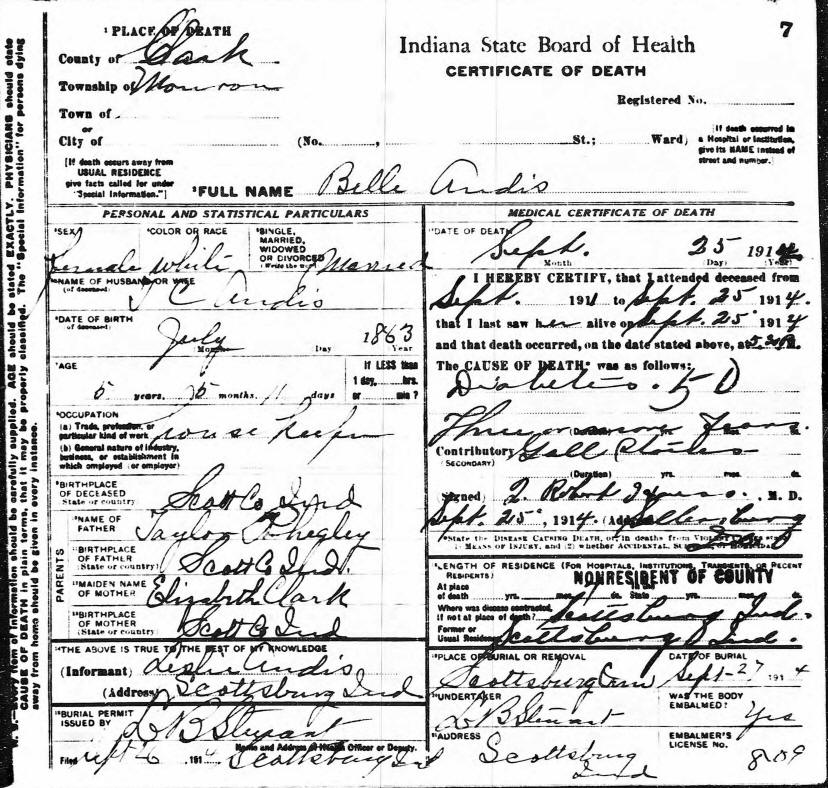 7
¹ PLACE OF DEATH
County of Clark
Township of Monroe
Town of
or
City of (No. , St.; Ward)
Indiana State Board of Health
CERTIFICATE OF DEATH
Registered No.
[If death occurs away from
USUAL RESIDENCE
give facts called for under
"Special Information."]
[If death occurred in
a Hospital or Institution,
give its NAME instead of
street and number.]
²FULL NAME Belle Andis
PERSONAL AND STATISTICAL PARTICULARS
³SEX Female
⁴COLOR OR RACE White
⁵SINGLE, MARRIED, WIDOWED OR DIVORCED (Write the word) Married
NAME OF HUSBAND OR WIFE
(of deceased) C Andis
⁶DATE OF BIRTH
(of deceased) July 1863
Month Day Year
⁷AGE
If LESS than
1 day, hrs.
or min ?
years, months, 11 days
⁸OCCUPATION
(a) Trade, profession, or
particular kind of work House keeper
(b) General nature of industry,
business, or establishment in
which employed (or employer)
⁹BIRTHPLACE
OF DECEASED
(State or country) Scott Co Ind
PARENTS
¹⁰NAME OF
FATHER Taylor Phegley
¹¹BIRTHPLACE
OF FATHER
(State or country) Scott Co Ind.
¹²MAIDEN NAME
OF MOTHER Elizabeth Clark
¹³BIRTHPLACE
OF MOTHER
(State or country) Scott Co Ind
¹⁴THE ABOVE IS TRUE TO THE BEST OF MY KNOWLEDGE
(Informant) Leslie Andis
(Address) Scottsburg Ind
¹⁵BURIAL PERMIT
ISSUED BY L B Stewart
Name and Address of Health Officer or Deputy.
Filed Sept 26 1914 Scottsburg Ind
MEDICAL CERTIFICATE OF DEATH
¹⁶DATE OF DEATH Sept. 25 1914
Month (Day) (Year)
¹⁷ I HEREBY CERTIFY, that I attended deceased from
Sept. 1911 to Sept. 25 1914.
that I last saw her alive on Sept. 25 1914
and that death occurred, on the date stated above, at M.
The CAUSE OF DEATH* was as follows:
Diabetes. 50
Three or more Years.
(Duration) yrs. mos. ds.
Contributory Gall Stones
(SECONDARY)
(Duration) yrs. mos. ds.
(Signed) Robert , M. D.
Sept. 25, 1914. (Address) Sellersburg
Ind
*State the DISEASE CAUSING DEATH, or, in deaths from VIOLENT CAUSES state
(1) MEANS OF INJURY, and (2) whether ACCIDENTAL, SUICIDAL, or HOMICIDAL.
¹⁸LENGTH OF RESIDENCE (FOR HOSPITALS, INSTITUTIONS, TRANSIENTS, OR RECENT
RESIDENTS) NONRESIDENT OF COUNTY
At place
of death yrs. mos. ds. State yrs. mos. ds.
Where was disease contracted,
if not at place of death? Scottsburg Ind.
Former or
Usual Residence Scottsburg Ind.
¹⁹PLACE OF BURIAL OR REMOVAL Scottsburg Cem
DATE OF BURIAL Sept-27 1914
²⁰UNDERTAKER L B Stewart
WAS THE BODY
EMBALMED? Yes
²¹ADDRESS Scottsburg
Ind
EMBALMER'S
LICENSE No. 809
N. B.—Every item of information should be carefully supplied. AGE should be stated EXACTLY. PHYSICIANS should state
CAUSE OF DEATH in plain terms, that it may be properly classified. The "Special Information" for persons dying
away from home should be given in every instance.